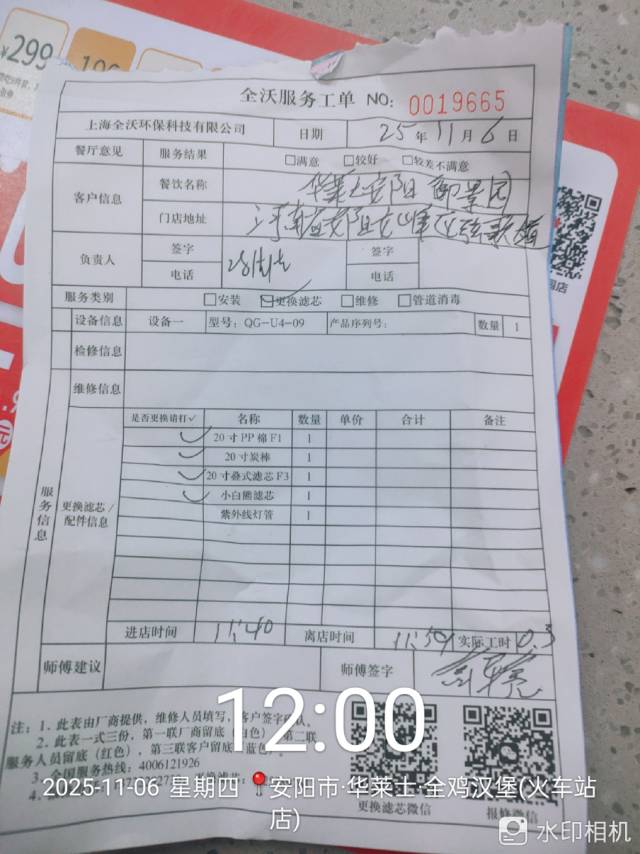 ¥299
全沃服务工单 NO: 0019665
上海全沃环保科技有限公司 日期 25年11月6日
餐厅意见 服务结果 □满意 □较好 □较差不满意
客户信息 餐饮名称 华莱士安阳
门店地址 河南省安阳
负责人 签字 签字
电话 电话
服务类别 □安装 ☑更换滤芯 □维修 □管道消毒
设备信息 设备一 型号: QG-U4-09 产品序列号: 数量 1
检修信息
维修信息
服务信息
更换滤芯/配件信息
是否更换请打✓ 名称 数量 单价 合计 备注
✓ 20寸PP棉F1 1
✓ 20寸炭棒 1
✓ 20寸叠式滤芯F3 1
✓ 小白熊滤芯 1
紫外线灯管 1
进店时间 11:40 离店时间 11:59 实际工时 0.3
师傅建议 师傅签字
注: 1. 此表由厂商提供, 维修人员填写, 客户签字确认。
2. 此表一式三份, 第一联厂商留底(白色), 第二联
服务人员留底(红色), 第三联客户留底(蓝色)。
3. 全国服务热线: 4006121926
更换滤芯微信 报修微信
12:00
2025-11-06 星期四 安阳市·华莱士·全鸡汉堡(火车站
店)
水印相机